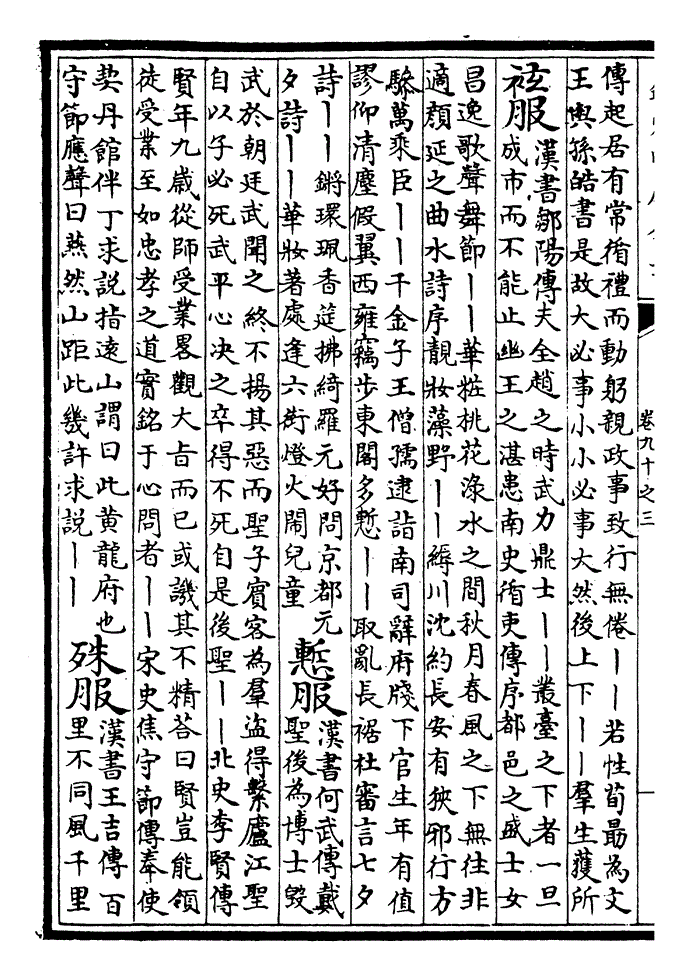 卷九十之三
傳起居有常循禮而動躬親政事致行無倦丨丨若性荀勗為文
王與孫皓書是故大必事小小必事大然後上下丨丨羣生獲所
袨服
漢書鄒陽傳夫全趙之時武力鼎士丨丨叢臺之下者一旦
成市而不能止幽王之湛患南史循吏傳序都邑之盛士女
昌逸歌聲舞節丨丨華粧桃花淥水之間秋月春風之下無往非
適顔延之曲水詩序靚妝藻野丨丨縟川沈約長安有狹邪行方
驂萬乘臣丨丨千金子王僧孺逮詣南司辭府牋下官生年有值
謬仰清塵假翼西雍竊步東閣多慙丨丨取亂長裾杜審言七夕
詩丨丨鏘環珮香筵拂綺羅元好問京都元
夕詩丨丨華妝著處逢六街燈火鬧兒童
慙服
漢書何武傳戴
聖後為博士毀
武於朝廷武聞之終不揚其惡而聖子賓客為羣盜得繫廬江聖
自以子必死武平心決之卒得不死自是後聖丨丨北史李賢傳
賢年九歲從師受業畧觀大旨而已或譏其不精答曰賢豈能領
徒受業至如忠孝之道實銘于心問者丨丨宋史焦守節傳奉使
契丹館伴丁求説指遠山謂曰此黄龍府也
守節應聲曰燕然山距此幾許求説丨丨
殊服
漢書王吉傳百
里不同風千里